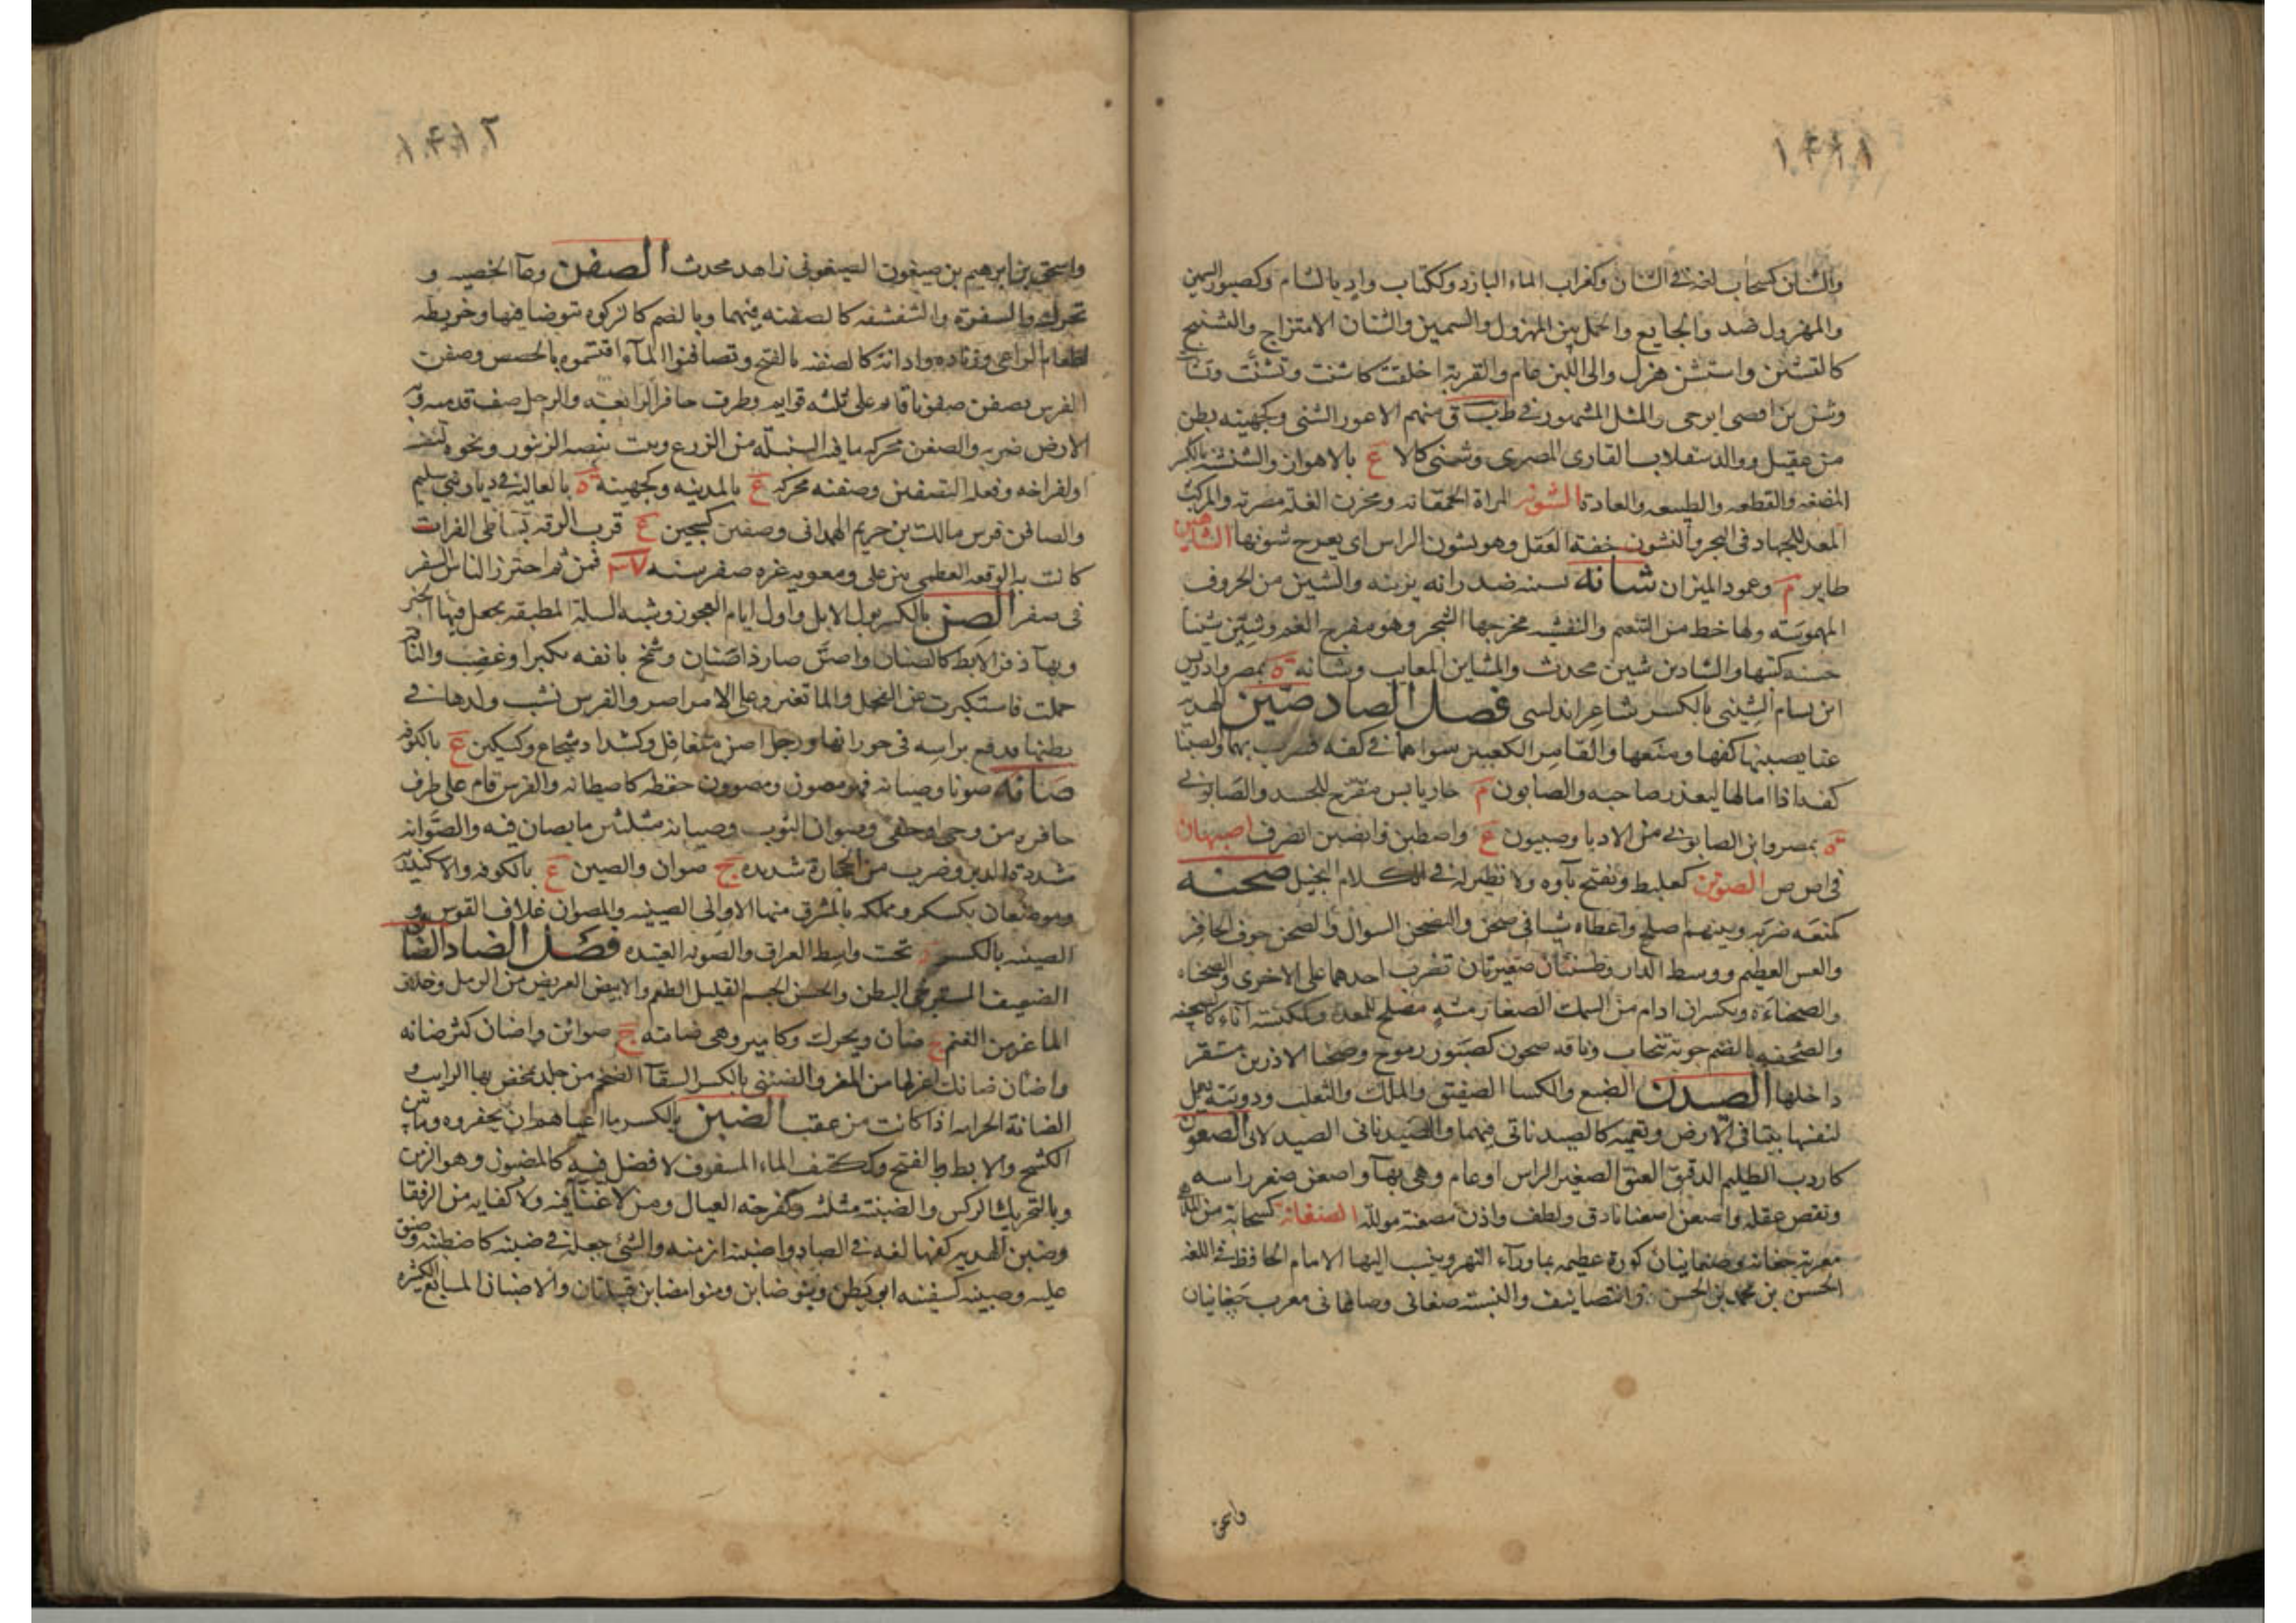 ١٤١١
والشنان كسحاب لغة في الشنان وكغراب الماء البارد وككتاب واد بالشام وكصبور السمين
والمهزول ضد والجايع والجمل بين المهزول والسمين والشنان الامتزاج والتشنج
كالتشنن واستشن هزل والى اللبن عام والقربة اخلقت كاشنت وتشننت وتشانت
وشن بن افصى ابو حي والمثل المشهور في ط ب ق منهم الاعور الشني وكجهينه بطن
من عقيل ووالد سقلاب القارى المصرى وشنى كالا ع بالاهواز والشنشنه بالكسر
المضغه والقطعه والطبيعه والعادة الشونه المراة الحمقانه ومخزن الغلة مصريه والمركب
المعد للجهاد في البحر والتشون خفة العقل وهو يشون الراس اى يعرج شونها الشاهين
طاير م وعمود الميزان شانه يشينه ضد زانه يزينه والشين من الحروف
المهموسة ولها خط من التنعم والنفشه مخرجها الشجر وهو مفرج الفم وشين شينا
حسنه كتبها والشاذ بن شين محدث والمشاين المعايب وشانه ة بمصر وادريس
ابن بسام الشيني بالكسر شاعر اندلسي فصل الصاد صبن الهديه
عنا يصبنها كفها ومنعها والمقامر الكعبين سواهما في كفه فضرب بهما والصبنا
كفه اذا امالها ليغدر صاحبه والصابون م حار يابس مقرح للجسد والصابوني
ة بمصر وابن الصابوني من الادبا وصبيون ع واصطبن وانصبن انصرف اصبهان
في ا ص ص الصوتن كعلبط وتفتح تآوه ولا نظير له في الكلام البخيل صحنه
كمنعه ضربه وبينهم اصلح واعطاه شيا في صحن والتصحن السوال والصحن جوف الحافر
والعس العظيم ووسط الدار وطستان صغيرتان تضرب احدهما على الاخرى والصحناه
والصحناءة ويكسران ادام من السمك الصغار مشه مصلح للمعدة وكمكنسة اناء كالصحفه
والصحنه بالضم جوبة تنجاب وناقه صحون كصبور رموح وصحنا الاذنين مستقر
داخلها الصيدن الضبع والكسا الصفيق والملك والثعلب ودويبة تعمل
لنفسها بيتا في الارض وتعميه كالصيدناني فيهما والصيدناني الصيدلاني الصعون
كاردب الظليم الدقيق العنق الصغير الراس او عام وهي بهآ واصعن صغر راسه
ونقص عقله واصعن اصعنانا دق ولطف واذن مصعنة مولله الصغانه كسحابة من الملاهى
معربة جغانه وصغانيان كورة عظيمه بما ورآء النهر وينسب اليها الامام الحافظ في اللغه
الحسن بن محمد بن الحسن ذو التصانيف والنسبة صغاني وصاغاني معرب چغانيان
واسحق
١٤١٢
واسحق بن ابرهيم بن صيغون الصيغوني زاهد محدث الصفن وعآ الخصيه و
تحرك والسفرة والشقشقه كالصفنه فيهما وبالضم كالركوه تتوضا فيها وخريطه
لطعام الراعي وزناده واداته كالصفنه بالفتح وتصافنوا المآء اقتسموه بالحصص وصفن
الفرس يصفن صفونا قام على ثلثه قوايم وطرف حافر الرابعة والرجل صف قدميه وبه
الارض ضربه والصفن محركه ما فيه السنبلة من الزرع وبيت ينضده الزنبور ونحوه لنفسه
اولفراخه وفعله التصفين وصفنه محركه ع بالمدينه وكجهينه ة بالعاليه في ديار بني سليم
والصافن فرس مالك بن حريم الهمداني وصفين كسجين ع قرب الرقه بشاطى الفرات
كانت به الوقعه العظمى بين على ومعويه غره صفر سنه ٣٧ فمن ثم احترز الناس السفر
في صفر الصن بالكسر بول الابل واول ايام العجوز وشبه السلة المطبقه يجعل فيها الخبز
وبهآ ذفر الابط كالصنان واصن صار ذا صنان وشمخ بانفه تكبرا وغضب والناقه
حملت فاستكبرت على الفحل والمآ تغير وعلى الامر اصر والفرس نشب ولدها في
بطنها فدفع براسه في خورانها ورجل اصن متغافل وكشداد شجاع وكسكين ع بالكوفه
صانه صونا وصيانه فهو مصون ومصوون حفظه كاصطانه والفرس قام على طرف
حافره من وجى او حفى وصوان الثوب وصيانه مثلثين ما يصان فيه والصوانه
مشددة الدبر وضرب من الحجارة شديده ج صوان والصين ع بالكوفه والاسكندريه
وموضعان بكسكر ومملكه بالمشرق منها الاواني الصينيه والمصوان غلاف القوس و
الصينيه بالكسر د تحت واسط العراق والصونه العتيده فصل الضاد الضان
الضعيف المسترخى البطن والحسن الجسم القليل الطعم والابيض العريض من الرمل وخلاف
الماعز من الغنم ج ضان ويحرك وكامير وهى ضانه ج ضوائن واضان كثر ضانه
واضان ضانك اعزلها من المعز والضئنى بالكسر السقآ الضخم من جلد يمخض به الرايب و
الضانة الحرامه اذا كانت من عقب الضبن بالكسر ما اعياهم ان يحفروه وما بين
الكشح والابط وبالفتح وككتف الماء المسفوف لا فضل فيه كالمضبون وهو الزمن
وبالتحريك الوكس والضبنه مثلثه وكفرحه العيال ومن لا غنآ فيه ولا كفايه من الرفقا
وضبن الهديه كفها لغه في الصاد واضبنه ازمنه والشئ جعله في ضبنه كاضطبنه وضيق
عليه وضبينه كسفينه ابو بطن وبنو ضابن وبنو مضابن قبيلتان والاضبان المسابع الكثيره